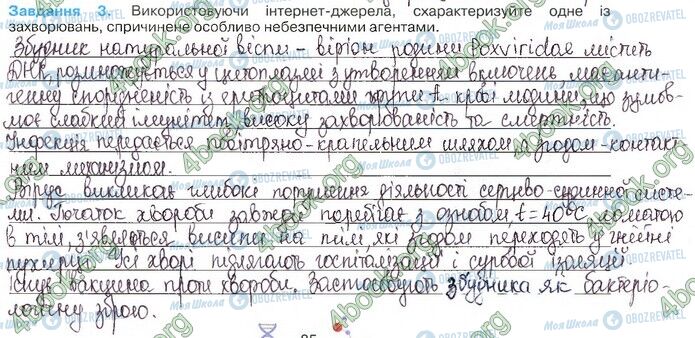 Завдання 3. Використовуючи інтернет-джерела, схарактеризуйте одне із
захворювань, спричинене особливо небезпечними агентами.
Збудник натуральної віспи - віріон родини Poxviridae містить
ДНК, розмножується у цитоплазмі з утворенням включень, має анти-
генну спорідненість із еритроцитами групи крові людини, що зумов-
лює слабкий імунітет, високу захворюваність та смертність.
Інфекція передається повітряно-крапельним шляхом, згодом - контакт-
ним механізмом.
Вірус викликає глибокі порушення діяльності серцево-судинної систе-
ми. Початок хвороби завжди перебігає з ознобом, t - 40°C, ломотою
в тілі, з'являється висипи на тілі, які згодом переходять у гнійні
пухирці. Усі хворі підлягають госпіталізації і суворої ізоляції.
Існує вакцина проти хвороби. Застосовують збудника як бактеріо-
логічну зброю.
85
Моя Школа
OBOZREVATEL
4book.org